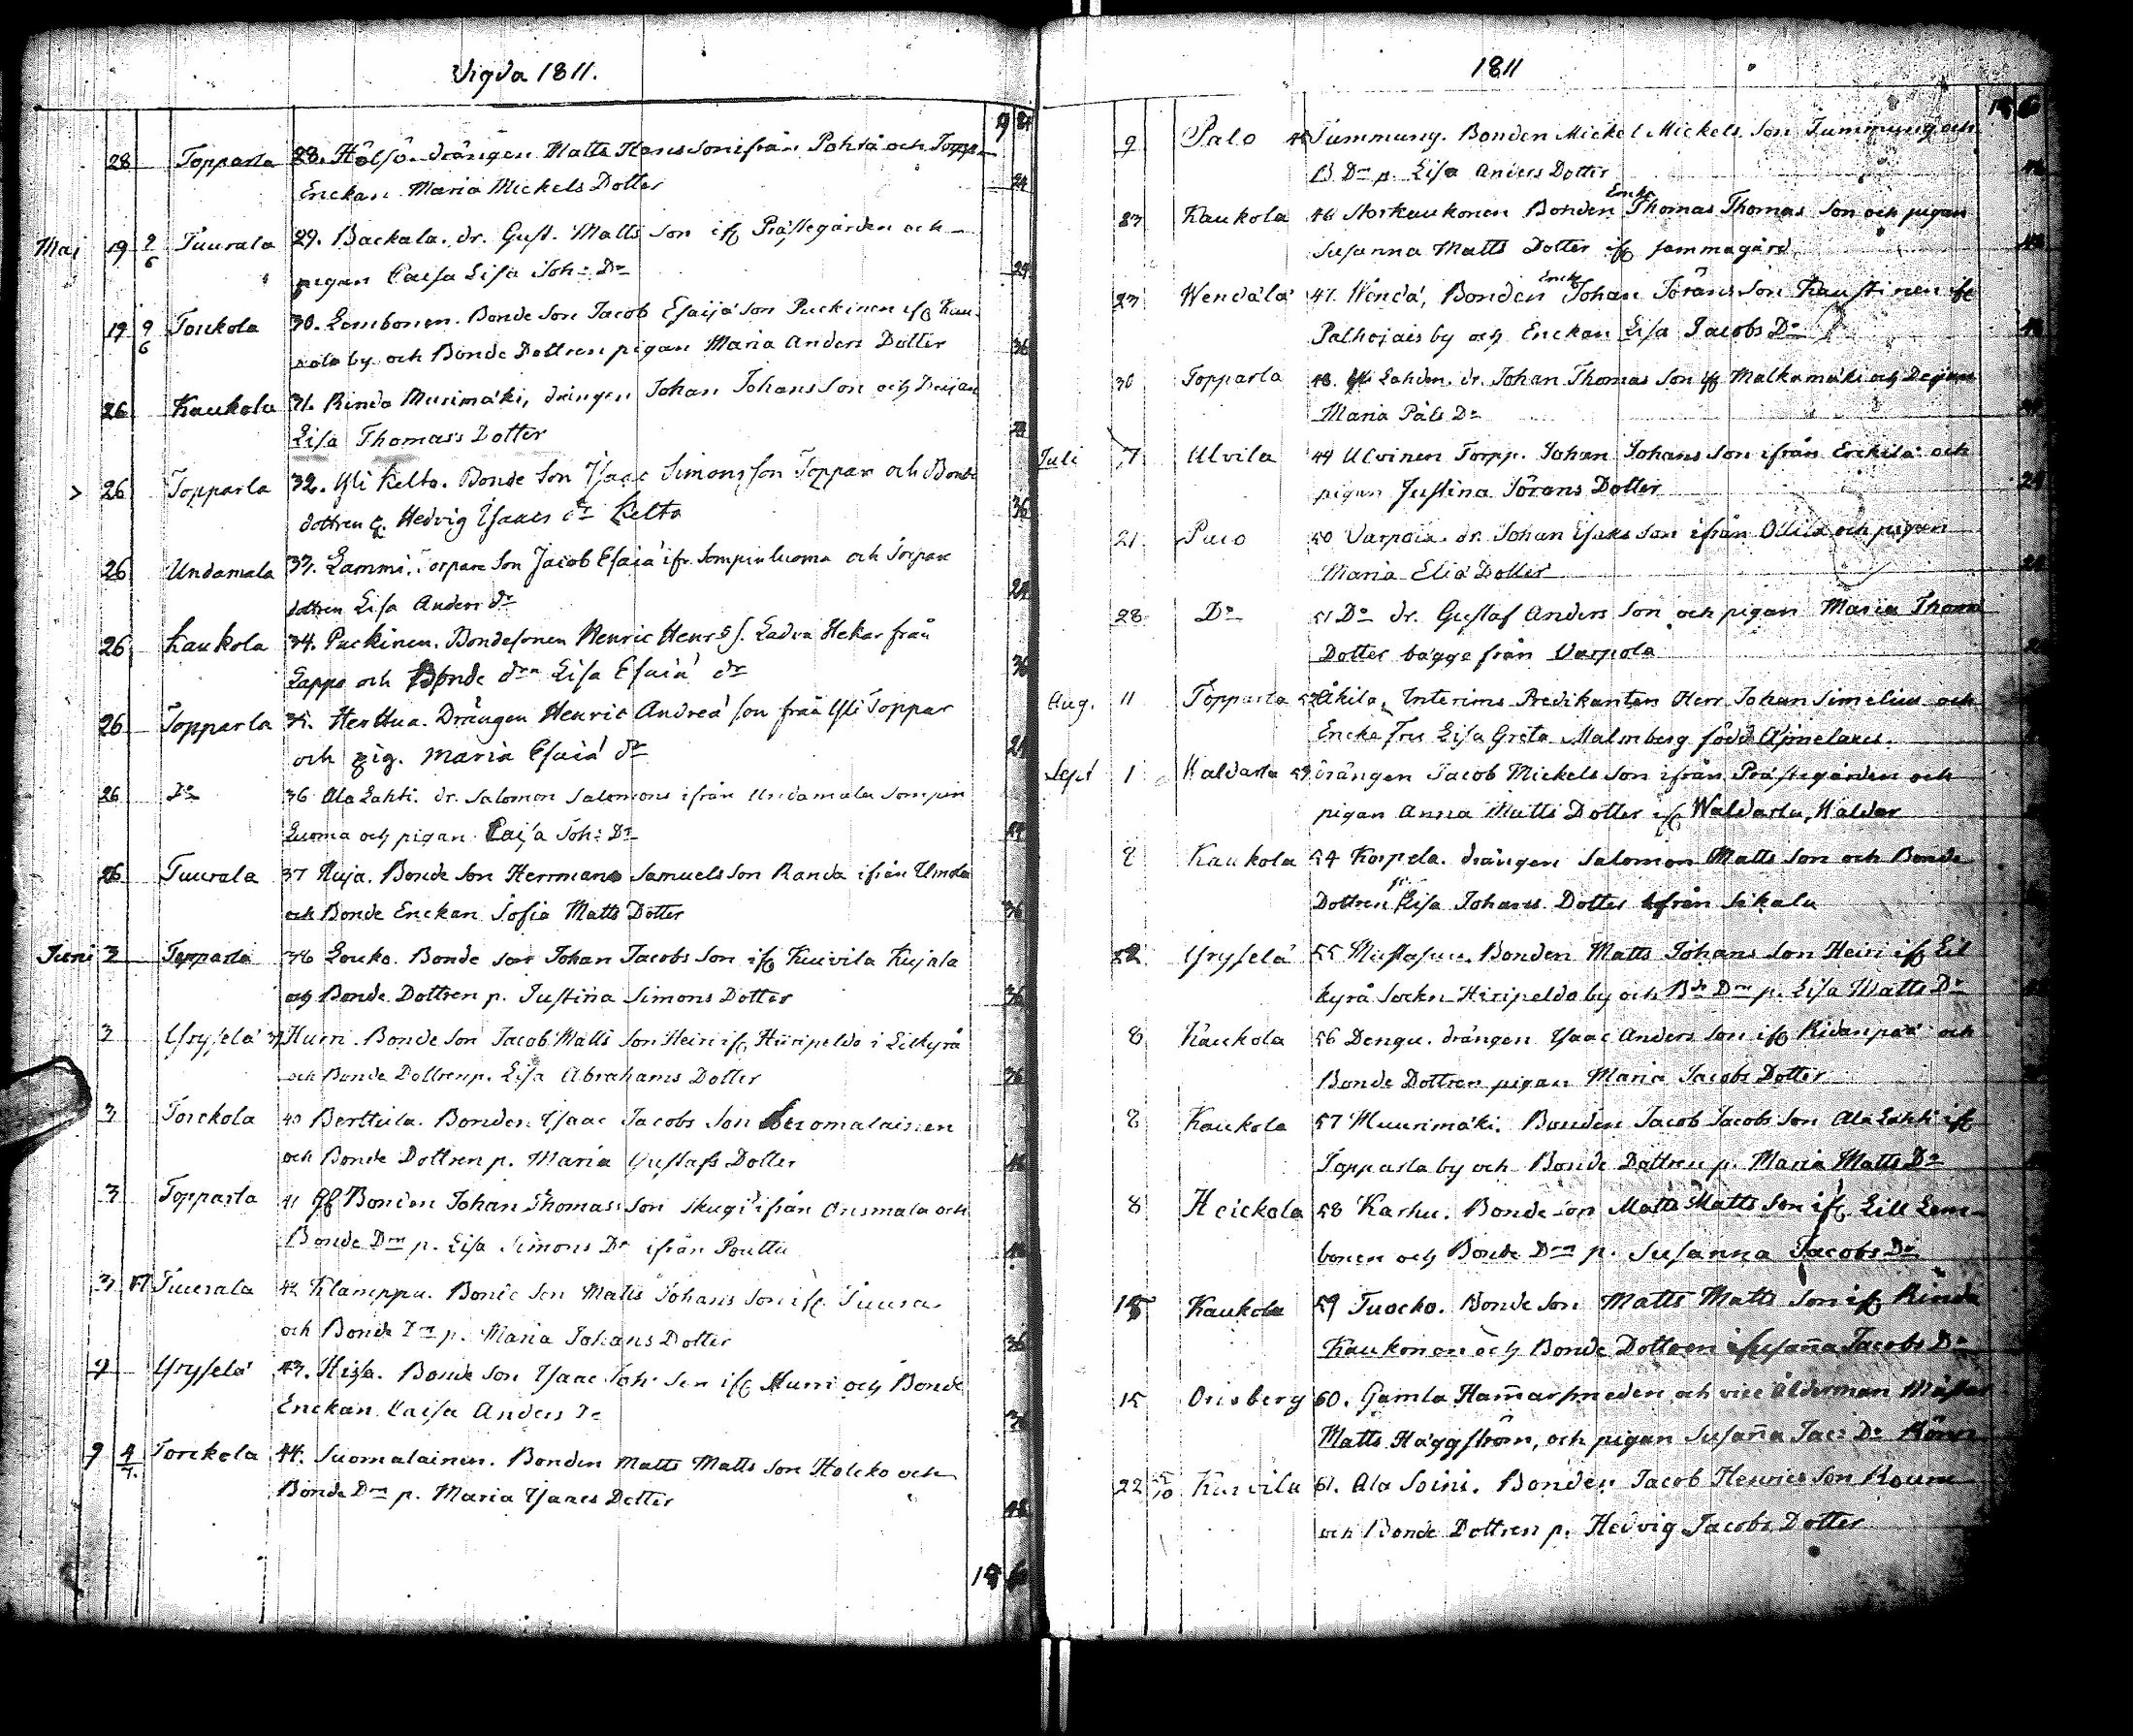 Vigda 1811.
28 Topparla 28. Hölsö. drängen Matts Hans Son ifrån Pohta och Topp-
Enckan Maria Mickels Dotter 24
Maj 19 9/6 Tuurala 29. Backala. dr. Gust. Matts Son if Prästegården och
pigan Caisa Lisa Joh: Dr 24
19 9/6 Torckola 30. Lembonen. Bonde Son Jacob Esaijä Son Puckinen if Kau-
kola by och Bonde Dottren pigan Maria Anders Dotter 36
26 Kaukola 31. Rinda Murimäki, drängen Johan Johans Son och
Lisa Thomas Dotter 24
26 Topparla 32. Yli Kelto. Bonde Son Ysaac Simons Son Toppar och Bonde
dottren p. Hedvig Ysaacs dr Kelto 36
26 Undamala 33. Lammi. Torpare Son Jacob Esaiä ifr. Sompinluoma och Torpare
dottren Lisa Anders dr 24
26 Kaukola 34. Puckinen. Bondesonen Henric Henr. S. Ladva Hekar från
Lappo och Bonde drn Lisa Esaiä dr 36
26 Topparla 35. Herttua. Drängen Henric Andreä Son från Yli Toppar
och pig. Maria Esaiä dr 24
26 Do 36 Ala Lahti. dr. Salomon Salomons ifrån Undamala Sompin
Luoma och pigan Caisa Joh: Dr 24
26 Tuurala 37 Kuja. Bonde Son Herrman Samuels Son Randa ifrån Ulmola
och Bonde Enckan Sofia Matts Dotter 36
Juni 3 Topparla 38 Louko. Bonde Son Johan Jacobs Son if Kuivila Kujala
och Bonde Dottren p. Justina Simons Dotter 36
3 Yrysselä 39 Hurri. Bonde Son Jacob Matts Son Heiri if Hiiripeldo i Lilkyrå
och Bonde Dottren p. Lisa Abrahams Dotter 36
3 Torckola 40 Berttula. Bonden Ysaac Jacobs Son Suomalainen
och Bonde Dottren p. Maria Gustafs Dotter
3 Topparla 41 Bonden Johan Thomas Son Skugi ifrån Orismala och
Bonde Drn p. Lisa Simons Dr ifrån Pouttu
3 Tuurala 42 Klamppu. Bonde Son Matts Johans Son if Tuura
och Bonde Drn p. Maria Johans Dotter 36
9 Yrysselä 43. Hissa. Bonde Son Ysaac Joh. Son if Hurri och Bonde
Enckan Caisa Anders Dr 36
9 Torckola 44. Suomalainen. Bonden Matts Matts Son Holcko och
Bonde Drn p. Maria Ysaacs Dotter 48
1811
9 Palo 45 Tummung. Bonden Mickel Mickels Son Tummung och
B Dr p. Lisa Anders Dotter 48
23 Kaukola 46 Storkaukonen Bonden Enkl. Thomas Thomas Son och pigan
Susanna Matts Dotter if sammagård 48
23 Wendälä 47. Wendä, Bonden Enkl. Johan Jörans Son Kaustinen if
Palhojais by och Enckan Lisa Jacobs Dr 48
30 Topparla 48. Lahden. dr. Johan Thomas Son if Malkamäki och Dejan
Maria Påls Dr
Juli 7 Ulvila 49 Ulvinen Torpp. Johan Johans Son ifrån Erckilä och
pigan Justina Jörans Dotter 24
21 Puro 50 Varpola. dr. Johan Esaks Son ifrån Ollila och pigan
Maria Eliä Dotter
28 Do 51 Do dr. Gustaf Anders Son och pigan Maria Thom
Dotter bägge från Varpola
Aug. 11 Topparla 52 Åkila, Interims Predikanten Herr Johan Simelius och
Encke Fru Lisa Greta Malmberg född Ajmelaeus.
Sept 1 Waldarla 53 drängen Jacob Mickels Son ifrån Prästegården och
pigan Anna Matts Dotter if Waldarla, Waldar
8 Kaukola 54 Korpela. drängen Salomon Matts Son och Bonde
Dottren p. Lisa Johans Dotter ifrån Sikala
Yrysselä 55 Mustapuu. Bonden Matts Johans Son Heiri if Lil
kyrå Sockn Hiripeldo by och Bde Drn p. Lisa Matts Dr
8 Kaukola 56 Dengu. drängen Ysaac Anders Son if Ridanpää och
Bonde Dottren pigan Maria Jacobs Dotter
8 Kaukola 57 Muurimäki. Bonden Jacob Jacobs Son Ala Lahti if
Topparla by och Bonde Dottren p. Maria Matts Dr
8 Heickola 58 Karhu. Bonde Son Matts Matts Son if Lill Lem-
bonen och Bonde Drn p. Susanna Jacobs Dr
15 Kaukola 59 Tuocko. Bonde Son Matts Matts Son if Rinda
Kaukonen och Bonde Dottren Susaña Jacobs Dr
15 Orisberg 60. Gamla Ham̄arsmeden och vice Ålderman Mäster
Matts Häggström, och pigan Susaña Jac: Dr
22 5/10 Kuivila 61. Ala Soini. Bonden Jacob Henrics Son Kouru
och Bonde Dottren p. Hedvig Jacobs Dotter